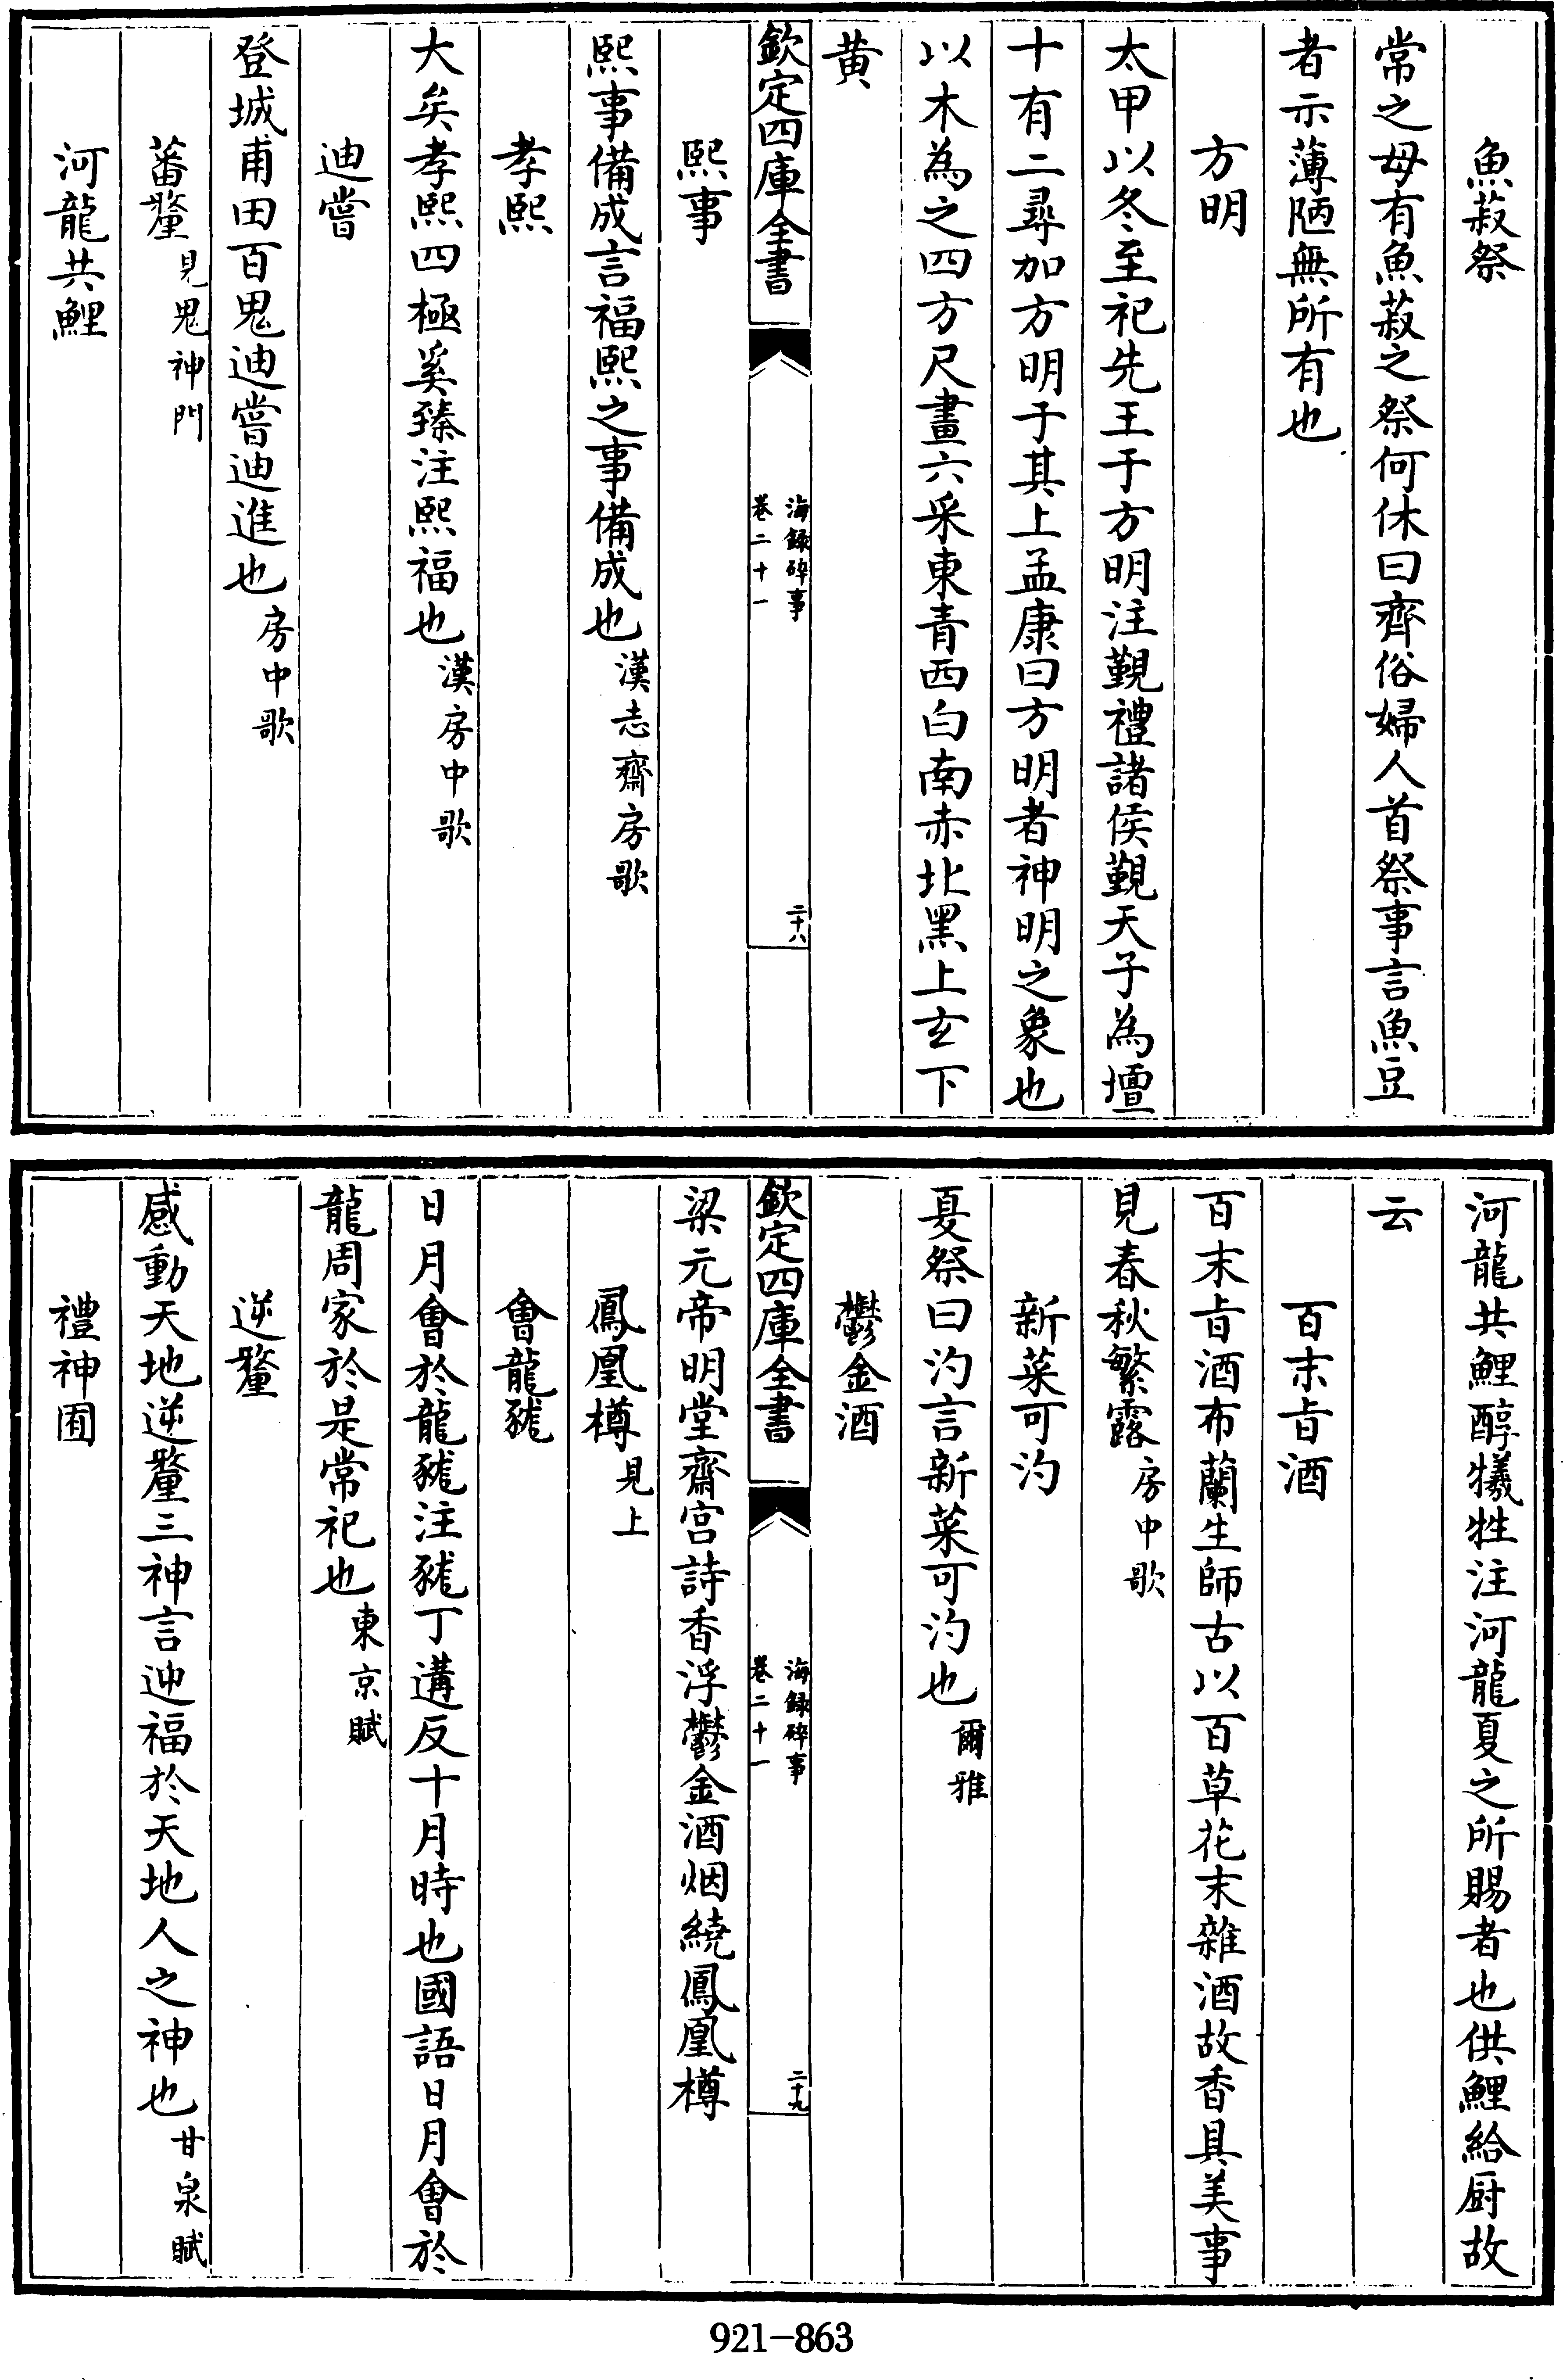 魚菽祭
常之母有魚菽之祭何休曰齊俗婦人首祭事言魚豆
者示薄陋無所有也
方明
太甲以冬至祀先王于方明注覲禮諸侯覲天子為壇
十有二尋加方明于其上孟康曰方明者神明之象也
以木為之四方尺畫六采東青西白南赤北黑上玄下
黃
欽定四庫全書
海録碎事
卷二十一
二十八
熙事
熙事備成言福熙之事備成也漢志齋房歌
孝熙
大矣孝熙四極奚臻注熙福也漢房中歌
迪嘗
登城甫田百鬼迪嘗迪進也房中歌
蕃釐見鬼神門
河龍共鯉
河龍共鯉醇犧牲注河龍夏之所賜者也供鯉給厨故
云
百末旨酒
百末旨酒布蘭生師古以百草花末雜酒故香具美事
見春秋繁露房中歌
新菜可汋
夏祭曰汋言新菜可汋也爾雅
鬱金酒
欽定四庫全書
海録碎事
卷二十一
二十九
梁元帝明堂齋宮詩香浮鬱金酒烟繞鳳凰樽
鳳凰樽見上
會龍㹥
日月會於龍㹥注㹥丁遘反十月時也國語日月會於
龍周家於是常祀也東京賦
逆釐
感動天地逆釐三神言迎福於天地人之神也甘泉賦
禮神囿
921-863